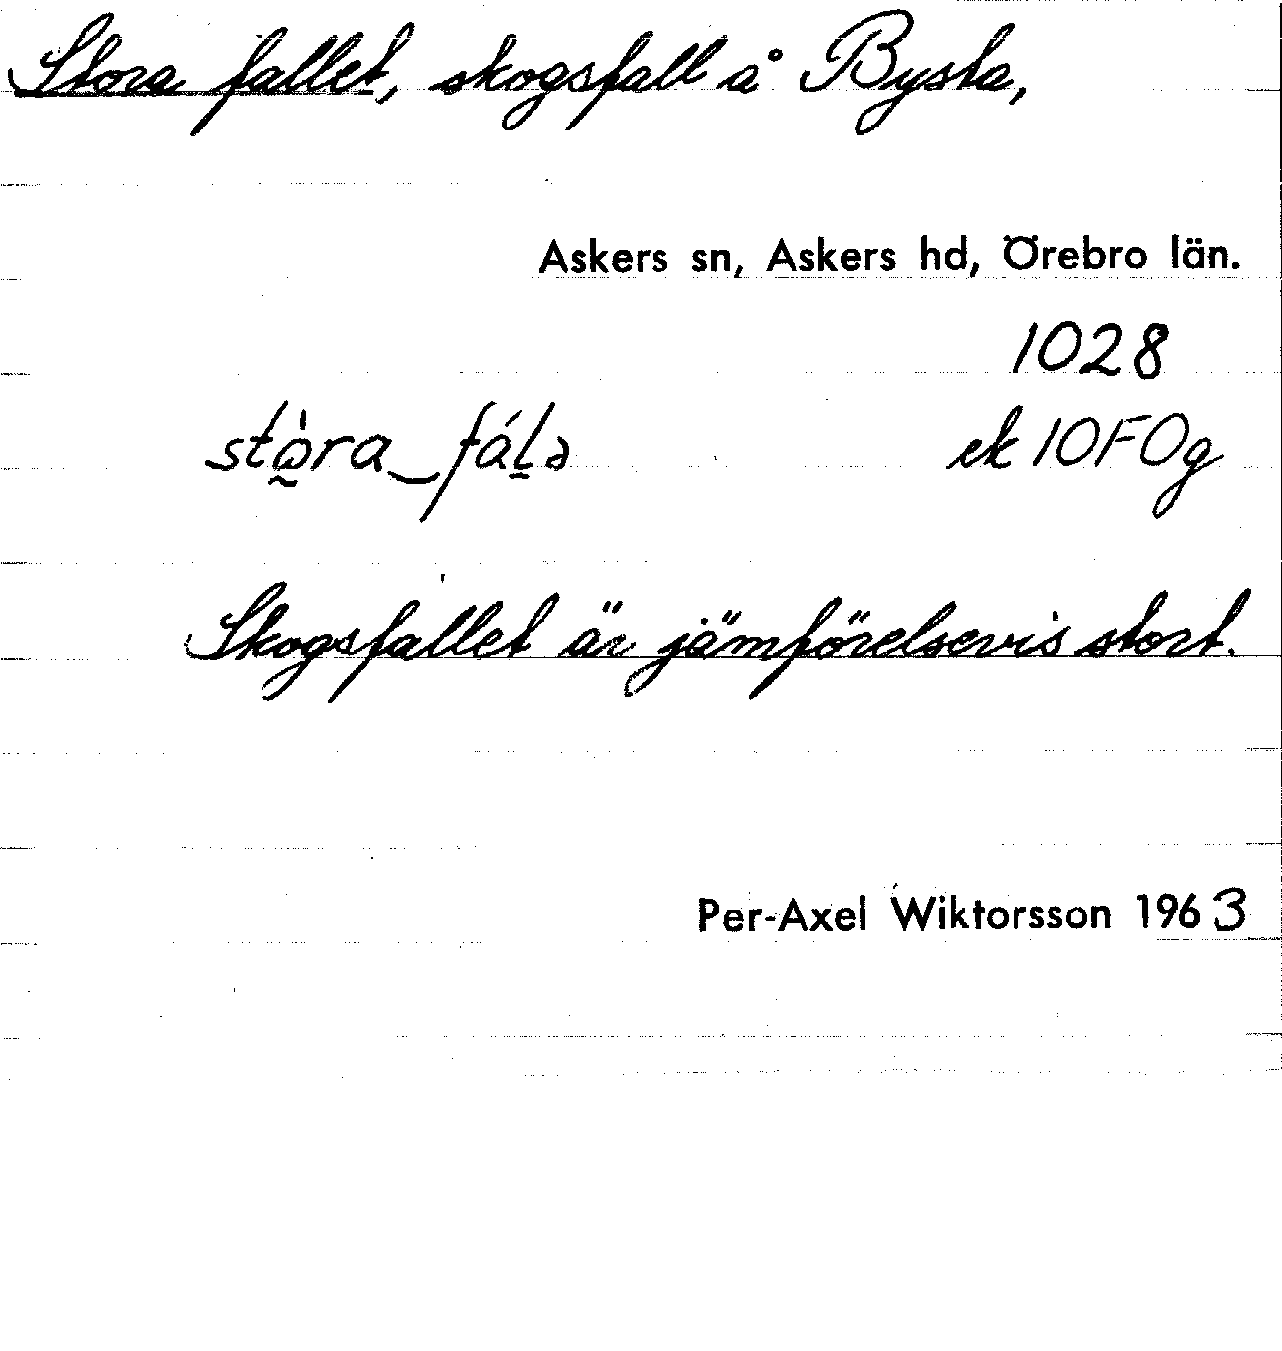 Stora fallet, skogsfall å Bysta,
Askers sn, Askers hd, Örebro län.
1028
stòra‿fáḻə ek 10F0g
Skogsfallet är jämförelsevis stort.
Per-Axel Wiktorsson 1963